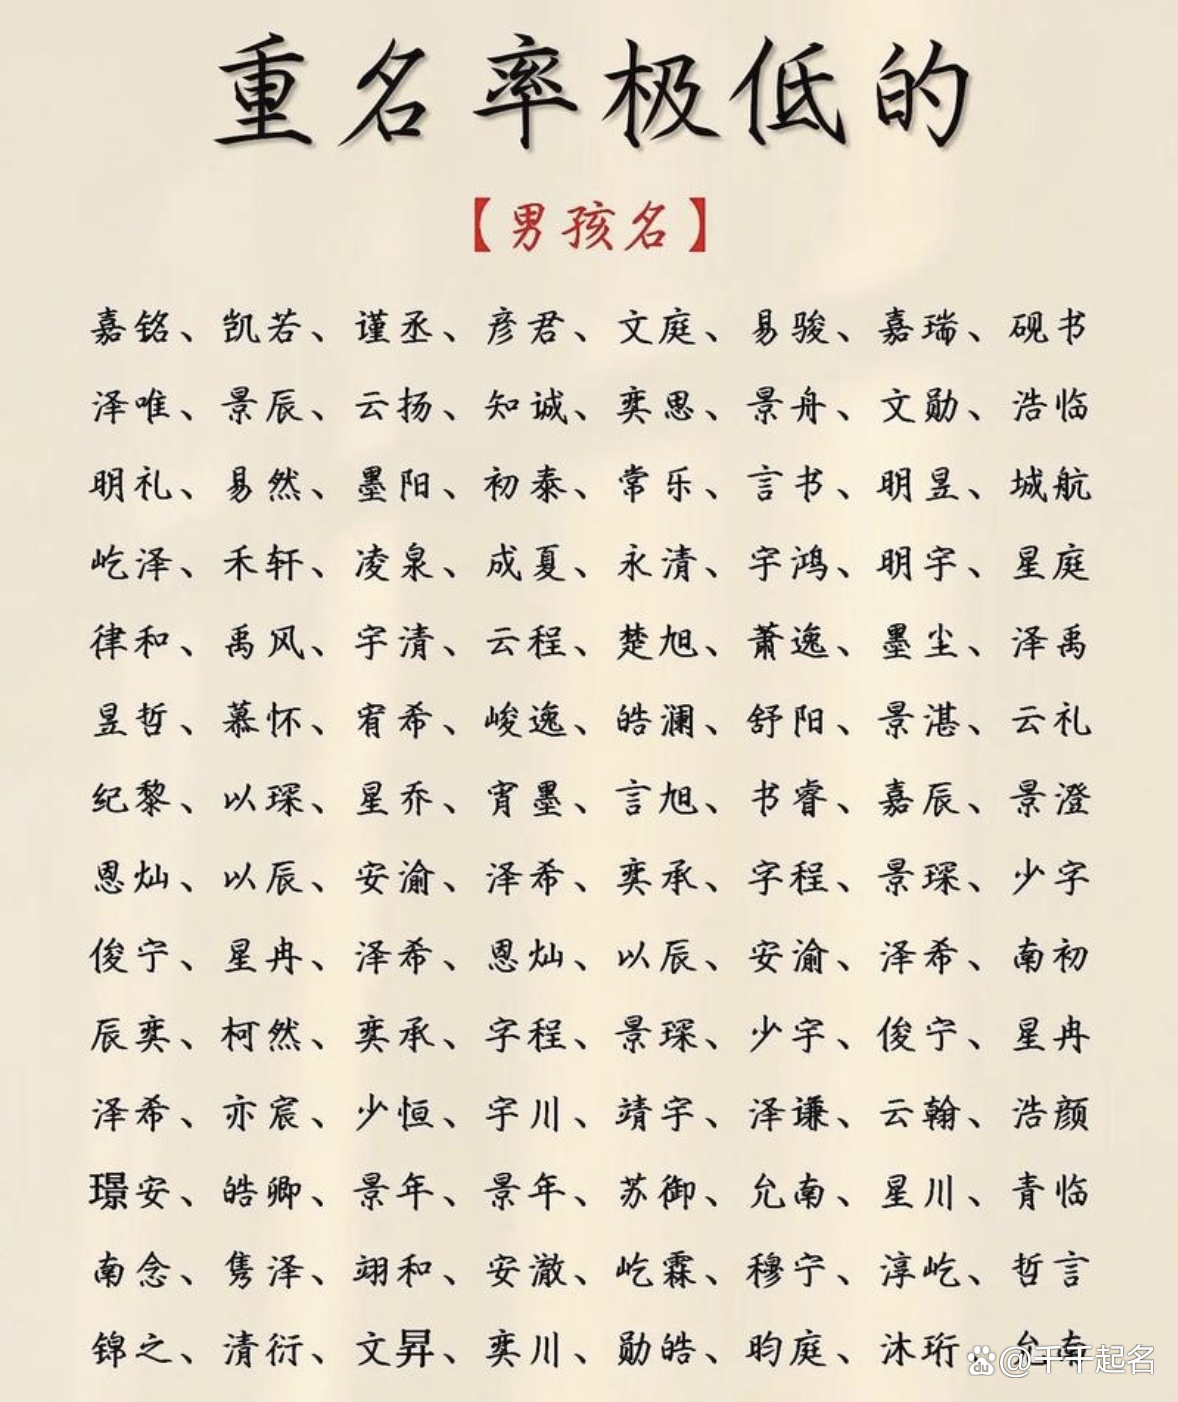 重名率极低的
【男孩名】
嘉铭、凯若、谨丞、彦君、文庭、易骏、嘉瑞、砚书
泽唯、景辰、云扬、知诚、奕思、景舟、文勋、浩临
明礼、易然、墨阳、初泰、常乐、言书、明昱、城航
屹泽、禾轩、凌泉、成夏、永清、宇鸿、明宇、星庭
律和、禹风、宇清、云程、楚旭、萧逸、墨尘、泽禹
昱哲、慕怀、宥希、峻逸、皓澜、舒阳、景湛、云礼
纪黎、以琛、星乔、宵墨、言旭、书睿、嘉辰、景澄
恩灿、以辰、安渝、泽希、奕承、字程、景琛、少宇
俊宁、星冉、泽希、恩灿、以辰、安渝、泽希、南初
辰奕、柯然、奕承、字程、景琛、少宇、俊宁、星冉
泽希、亦宸、少恒、宇川、靖宇、泽谦、云翰、浩颜
璟安、皓卿、景年、景年、苏御、允南、星川、青临
南念、隽泽、翊和、安澈、屹霖、穆宁、淳屹、哲言
锦之、清衍、文昇、奕川、勋皓、昀庭、沐珩、允南
du @千千起名